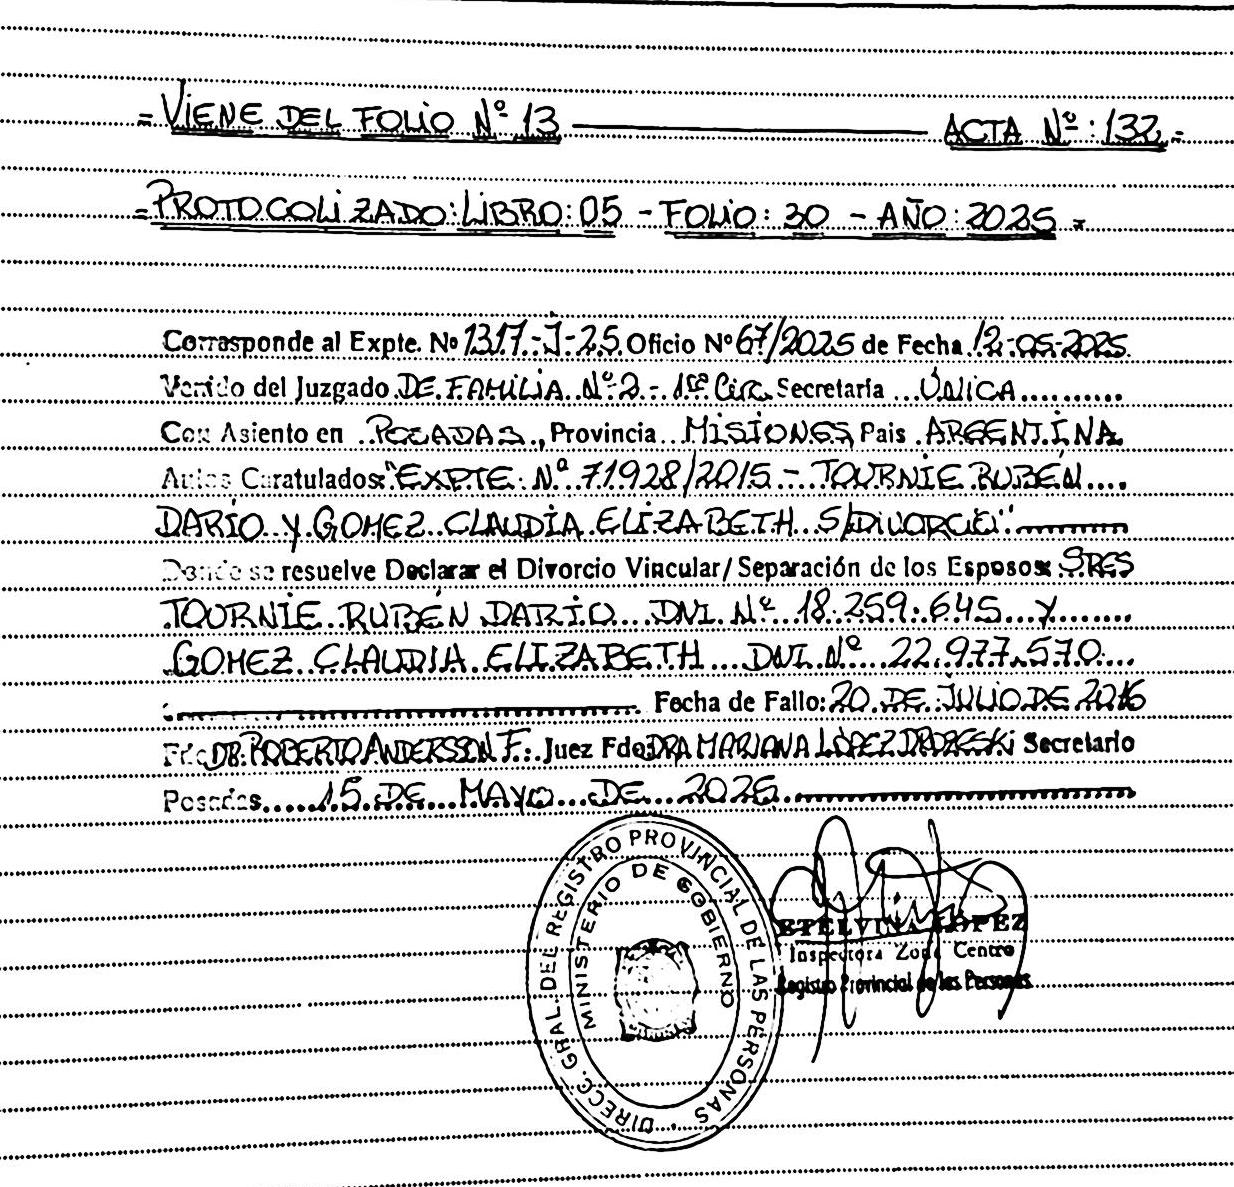 = VIENE DEL FOLIO Nº 13 ACTA Nº: 132 =
= PROTOCOLIZADO: LIBRO: 05 - FOLIO: 30 - AÑO: 2025 =
Corresponde al Expte. Nº 1317-J-25 Oficio Nº 67/2025 de Fecha 12-05-2025
Venido del Juzgado DE FAMILIA Nº 2 - 1ra Circ. Secretaria ÚNICA
Con Asiento en POSADAS, Provincia MISIONES, Pais ARGENTINA
Autos Caratulados: "EXPTE. Nº 71928/2015 - TOURNIE RUBÉN
DARIO Y GOMEZ CLAUDIA ELIZABETH S/DIVORCIO"
Donde se resuelve Declarar el Divorcio Vincular/Separación de los Esposos: SRES
TOURNIE RUBÉN DARIO DNI. Nº 18.259.645 Y
GOMEZ CLAUDIA ELIZABETH DNI. Nº 22.977.570.
Fecha de Fallo: 20 DE JULIO DE 2016
Fdo. DR. ROBERTO ANDERSSON F. Juez Fdo. DRA MARIANA LÓPEZ Secretario
Posadas 15 DE MAYO DE 2025
DIRECC. GRAL. DEL REGISTRO PROVINCIAL DE LAS PERSONAS
MINISTERIO DE GOBIERNO
ETELVINA LOPEZ
Inspectora Zona Centro
Registro Provincial de las Personas